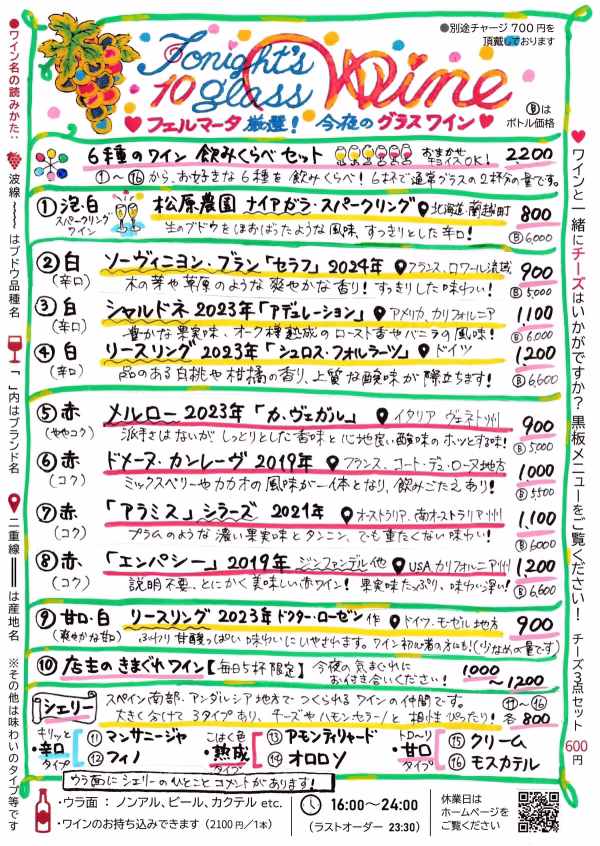 ●別途チャージ 700円を
頂戴しております
Tonight's
10 glass
Wine
♥フェルマータ 厳選! 今夜の グラスワイン♥
Ⓑは
ボトル価格
●ワイン名の読みかた:
波線〰〰はブドウ品種名
「 」内はブランド名
二重線═══は産地名
※その他は味わいのタイプ等です
6種のワイン 飲みくらべ セット
おまかせ
チョイスOK!
2200
①〜⑯から、お好きな6種を 飲みくらべ! 6杯で通常グラスの2杯分の量です。
① 泡・白
スパークリング
ワイン
松原農園 ナイアガラ・スパークリング
北海道 蘭越町
800
生のブドウをほおばったような風味、すっきりとした辛口!
Ⓑ6,000
② 白
(辛口)
ソーヴィニヨン・ブラン「セラフ」2024年
フランス、ロワール流域
900
木の芽や草原のような爽やかな香り! すっきりした味わい!
Ⓑ5,000
③ 白
(辛口)
シャルドネ 2023年「アデュレーション」
アメリカ、カリフォルニア
1,100
豊かな果実味、オーク樽熟成のロースト香やバニラの風味!
Ⓑ6,000
④ 白
(辛口)
リースリング 2023年「シュロス・フォルラーツ」
ドイツ
1,200
品のある白桃や柑橘の香り、上質な酸味が際立ちます!
Ⓑ6,600
⑤ 赤
(ややコク)
メルロー 2023年「カ・ヴェガル」
イタリア ヴェネト州
900
派手さはないが しっとりとした香味と心地良い酸味のホッとする味!
Ⓑ5,000
⑥ 赤
(コク)
ドメーヌ・カンレーヴ 2019年
フランス、コート・デュ・ローヌ地方
1,000
ミックスベリーやカカオの風味が一体となり、飲みごたえあり!
Ⓑ5,500
⑦ 赤
(コク)
「アラミス」シラーズ 2021年
オーストラリア、南オーストラリア州
1,100
プラムのような濃い果実味とタンニン、でも重たくない味わい!
Ⓑ6000
⑧ 赤
(コク)
「エンパシー」2019年 ジンファンデル他
USA カリフォルニア州
1,200
説明不要、とにかく美味しい赤ワイン! 果実味たっぷり、味わい深い!
Ⓑ6,600
⑨ 甘口・白
(爽やかな甘口)
リースリング 2023年 ドクター・ローゼン作
ドイツ、モーゼル地方
900
ふわり甘酸っぱい味わいにいやされます。ワイン初心者の方にも!(少なめの量です)
⑩ 店主のきまぐれワイン【毎日5杯限定】
今夜の気まぐれに
お付き合いください!
1000
〜1200
シェリー
スペイン南部・アンダルシア地方でつくられるワインの仲間です。
大きく分けて3タイプあり、チーズやハモンセラーノと相性ぴったり!
⑪〜⑯
各800
キリッと
・辛口
タイプ
⑪ マンサニージャ
⑫ フィノ
こはく色
・熟成
タイプ
⑬ アモンティリャード
⑭ オロロソ
トロ〜リ
・甘口
タイプ
⑮ クリーム
⑯ モスカテル
ウラ面にシェリーのひとことコメントがあります!
・ウラ面 : ノンアル、ビール、カクテル etc.
・ワインのお持ち込みできます (2100円/1本)
16:00〜24:00
(ラストオーダー 23:30)
休業日は
ホームページを
ご覧ください
♥ワインと一緒にチーズはいかがですか? 黒板メニューをご覧ください! チーズ3点セット 600円